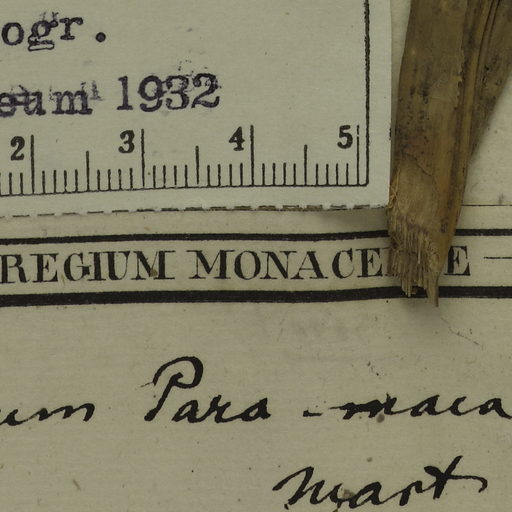 ogr.
eum 1932
2 3 4 5
REGIUM MONACE E
um Para-maca
Mart